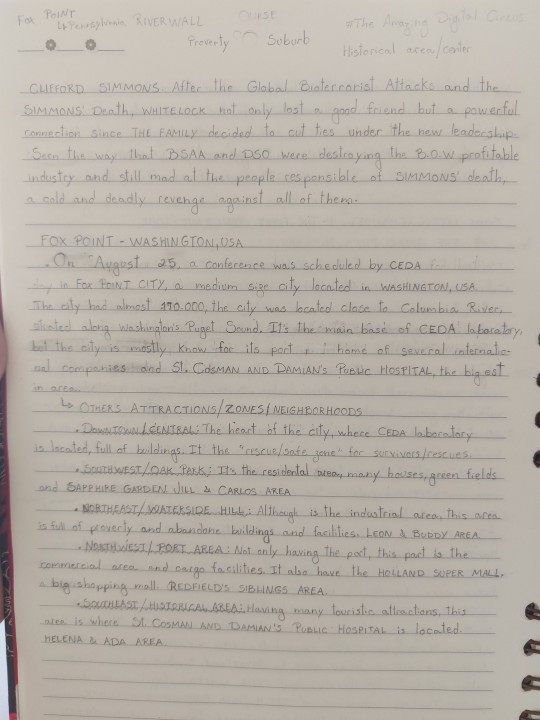 FOX POINT
↳ Pennsylvania RIVERWALL
#The Amazing Digital Circus
Proverty Suborb
Historical area/center
CLIFFORD SIMMONS. After the Global Bioterrorist Attacks and the
SIMMONS' Death, WHITELOCK not only lost a good friend but a powerful
connection since THE FAMILY decided to cut ties under the new leadership.
Seen the way that BSAA and DSO were destroying the B.O.W profitable
industry and still mad at the people responsible of SIMMONS' death,
a cold and deadly revenge against all of them.
FOX POINT - WASHINGTON, USA
• On August 25, a conference was scheduled by CEDA
day in FOX POINT CITY, a medium size city located in WASHINGTON, USA.
The city had almost 490.000, the city was located close to Columbia River,
situated along Washington's Puget Sound. It's the main base of CEDA laboratory,
but the city is mostly know for its port, home of several internatio-
nal companies and ST. COSMAN AND DAMIAN'S PUBLIC HOSPITAL, the biggest
in area.
↳ OTHERS ATTRACTIONS/ZONES/NEIGHBORHOODS
• DOWNTOWN/CENTRAL: The heart of the city, where CEDA laboratory
is located, full of buildings. It the "rescue/safe zone" for survivors/rescues.
• SOUTHWEST/OAK PARK: It's the residental area, many houses, green fields
and SAPPHIRE GARDEN. JILL & CARLOS AREA
• NORTHEAST/WATERSIDE HILL: Although is the industrial area, this area
is full of proverty and abandone buildings and facilities. LEON & BUDDY AREA.
• NORTHWEST/PORT AREA: Not only having the port, this part is the
commercial area and cargo facilities. It also have the HOLLAND SUPER MALL,
a big shopping mall. REDFIELD'S SIBLINGS AREA.
• SOUTHEAST/HISTORICAL AREA: Having many touristic attractions. This
area is where ST. COSMAN AND DAMIAN'S PUBLIC HOSPITAL is located.
HELENA & ADA AREA.